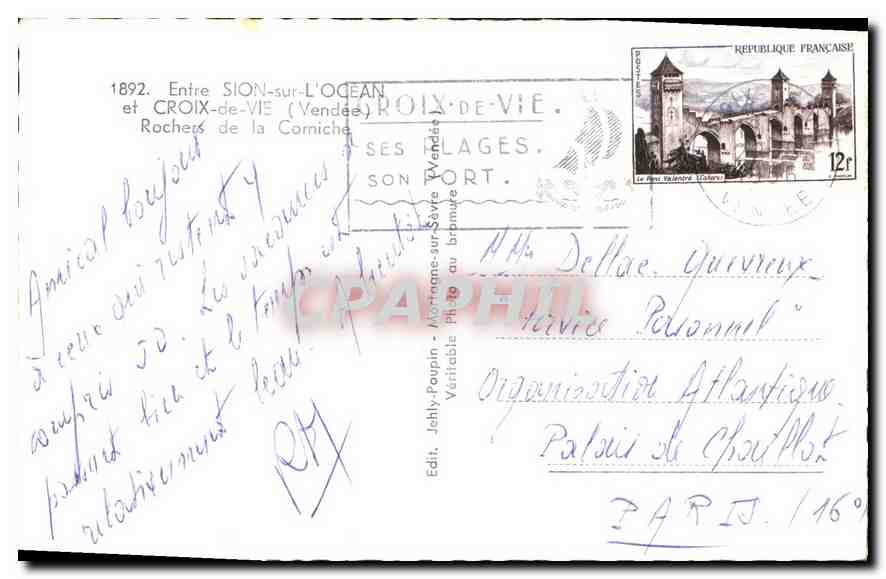 1892. Entre SION-sur-L'OCÉAN
et CROIX-de-VIE (Vendée)
Rochers de la Corniche
CROIX-DE-VIE.
SES PLAGES.
SON PORT.
POSTES
REPUBLIQUE FRANÇAISE
Le Pont Valentré (Cahors)
12f
Amical bonjour
à ceux qui restent y
compris JD. Les vacances se
passent bien et le temps est
relativement beau. A bientôt
Edit. Jehly-Poupin - Mortagne-sur-Sèvre (Vendée)
Véritable Photo au bromure
CPAPHIL
Dellac. Quevreux
"Service Personnel"
Organisation Atlantique
Palais de Chaillot
PARIS. (16°)